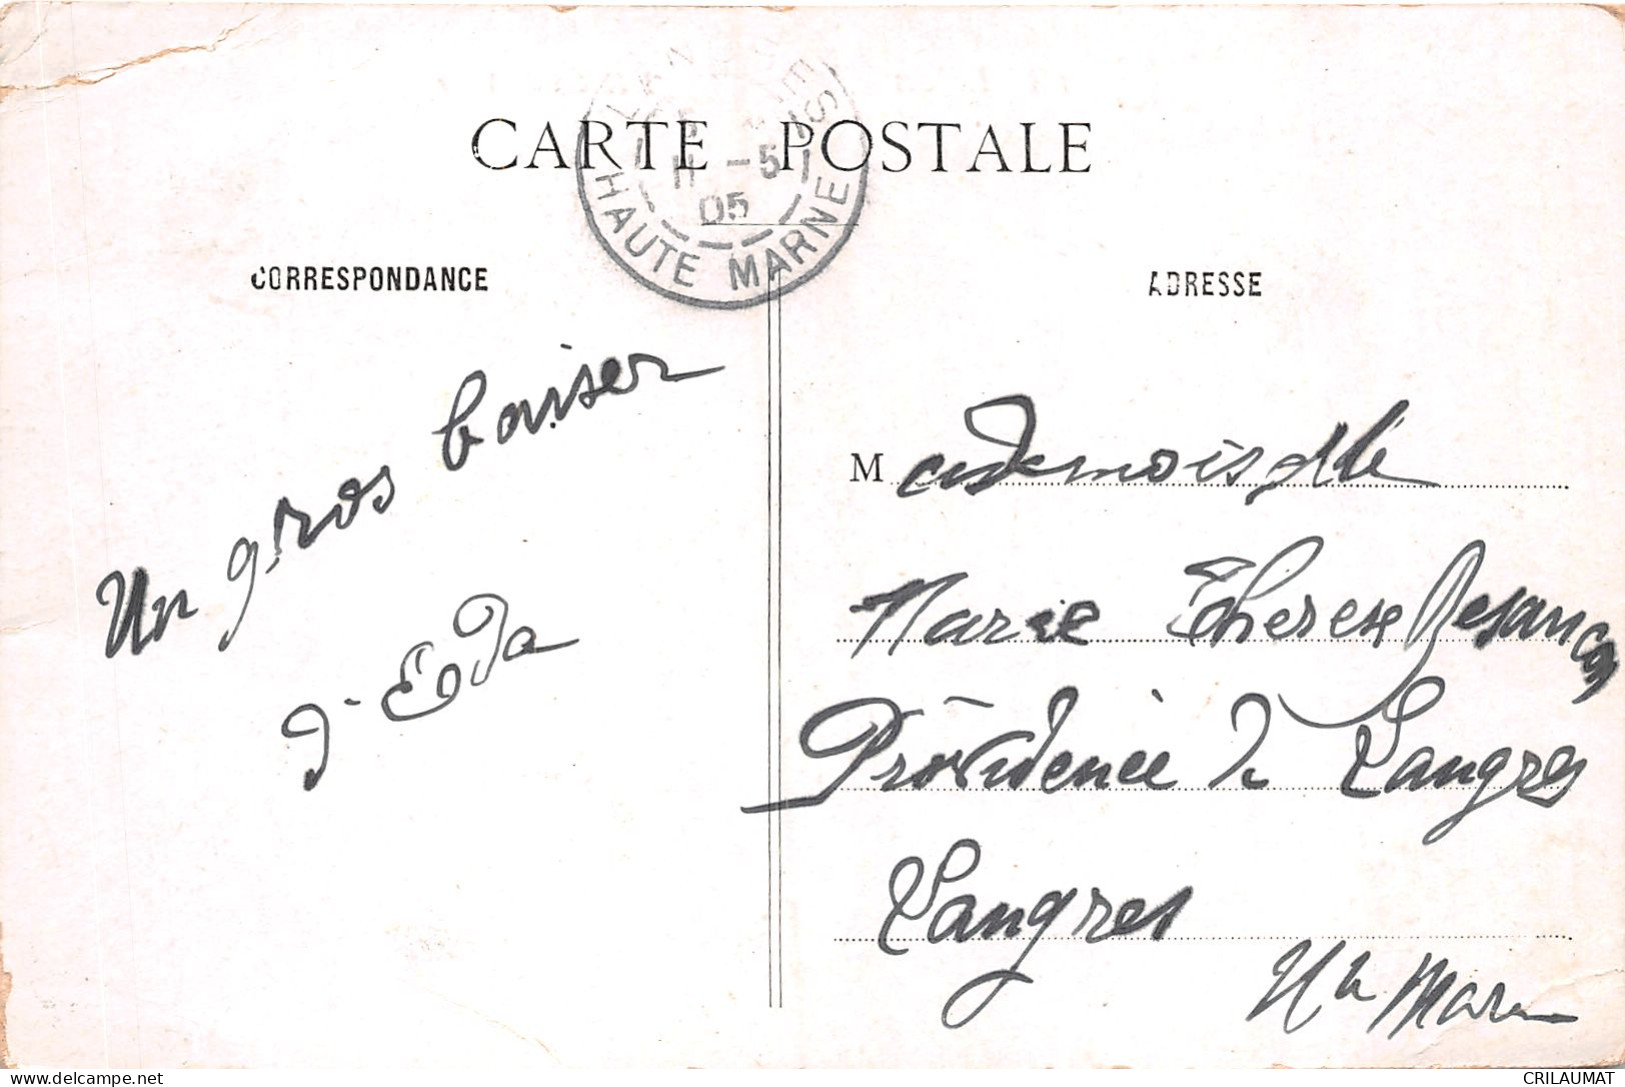 CARTE POSTALE
LANGRES
11 -5
05
HAUTE MARNE
CORRESPONDANCE
ADRESSE
Un gros baiser
d'Eoda
Mademoiselle
Marie Therese Besançon
Providence de Langres
Langres
Hte Marne
CRILAUMAT